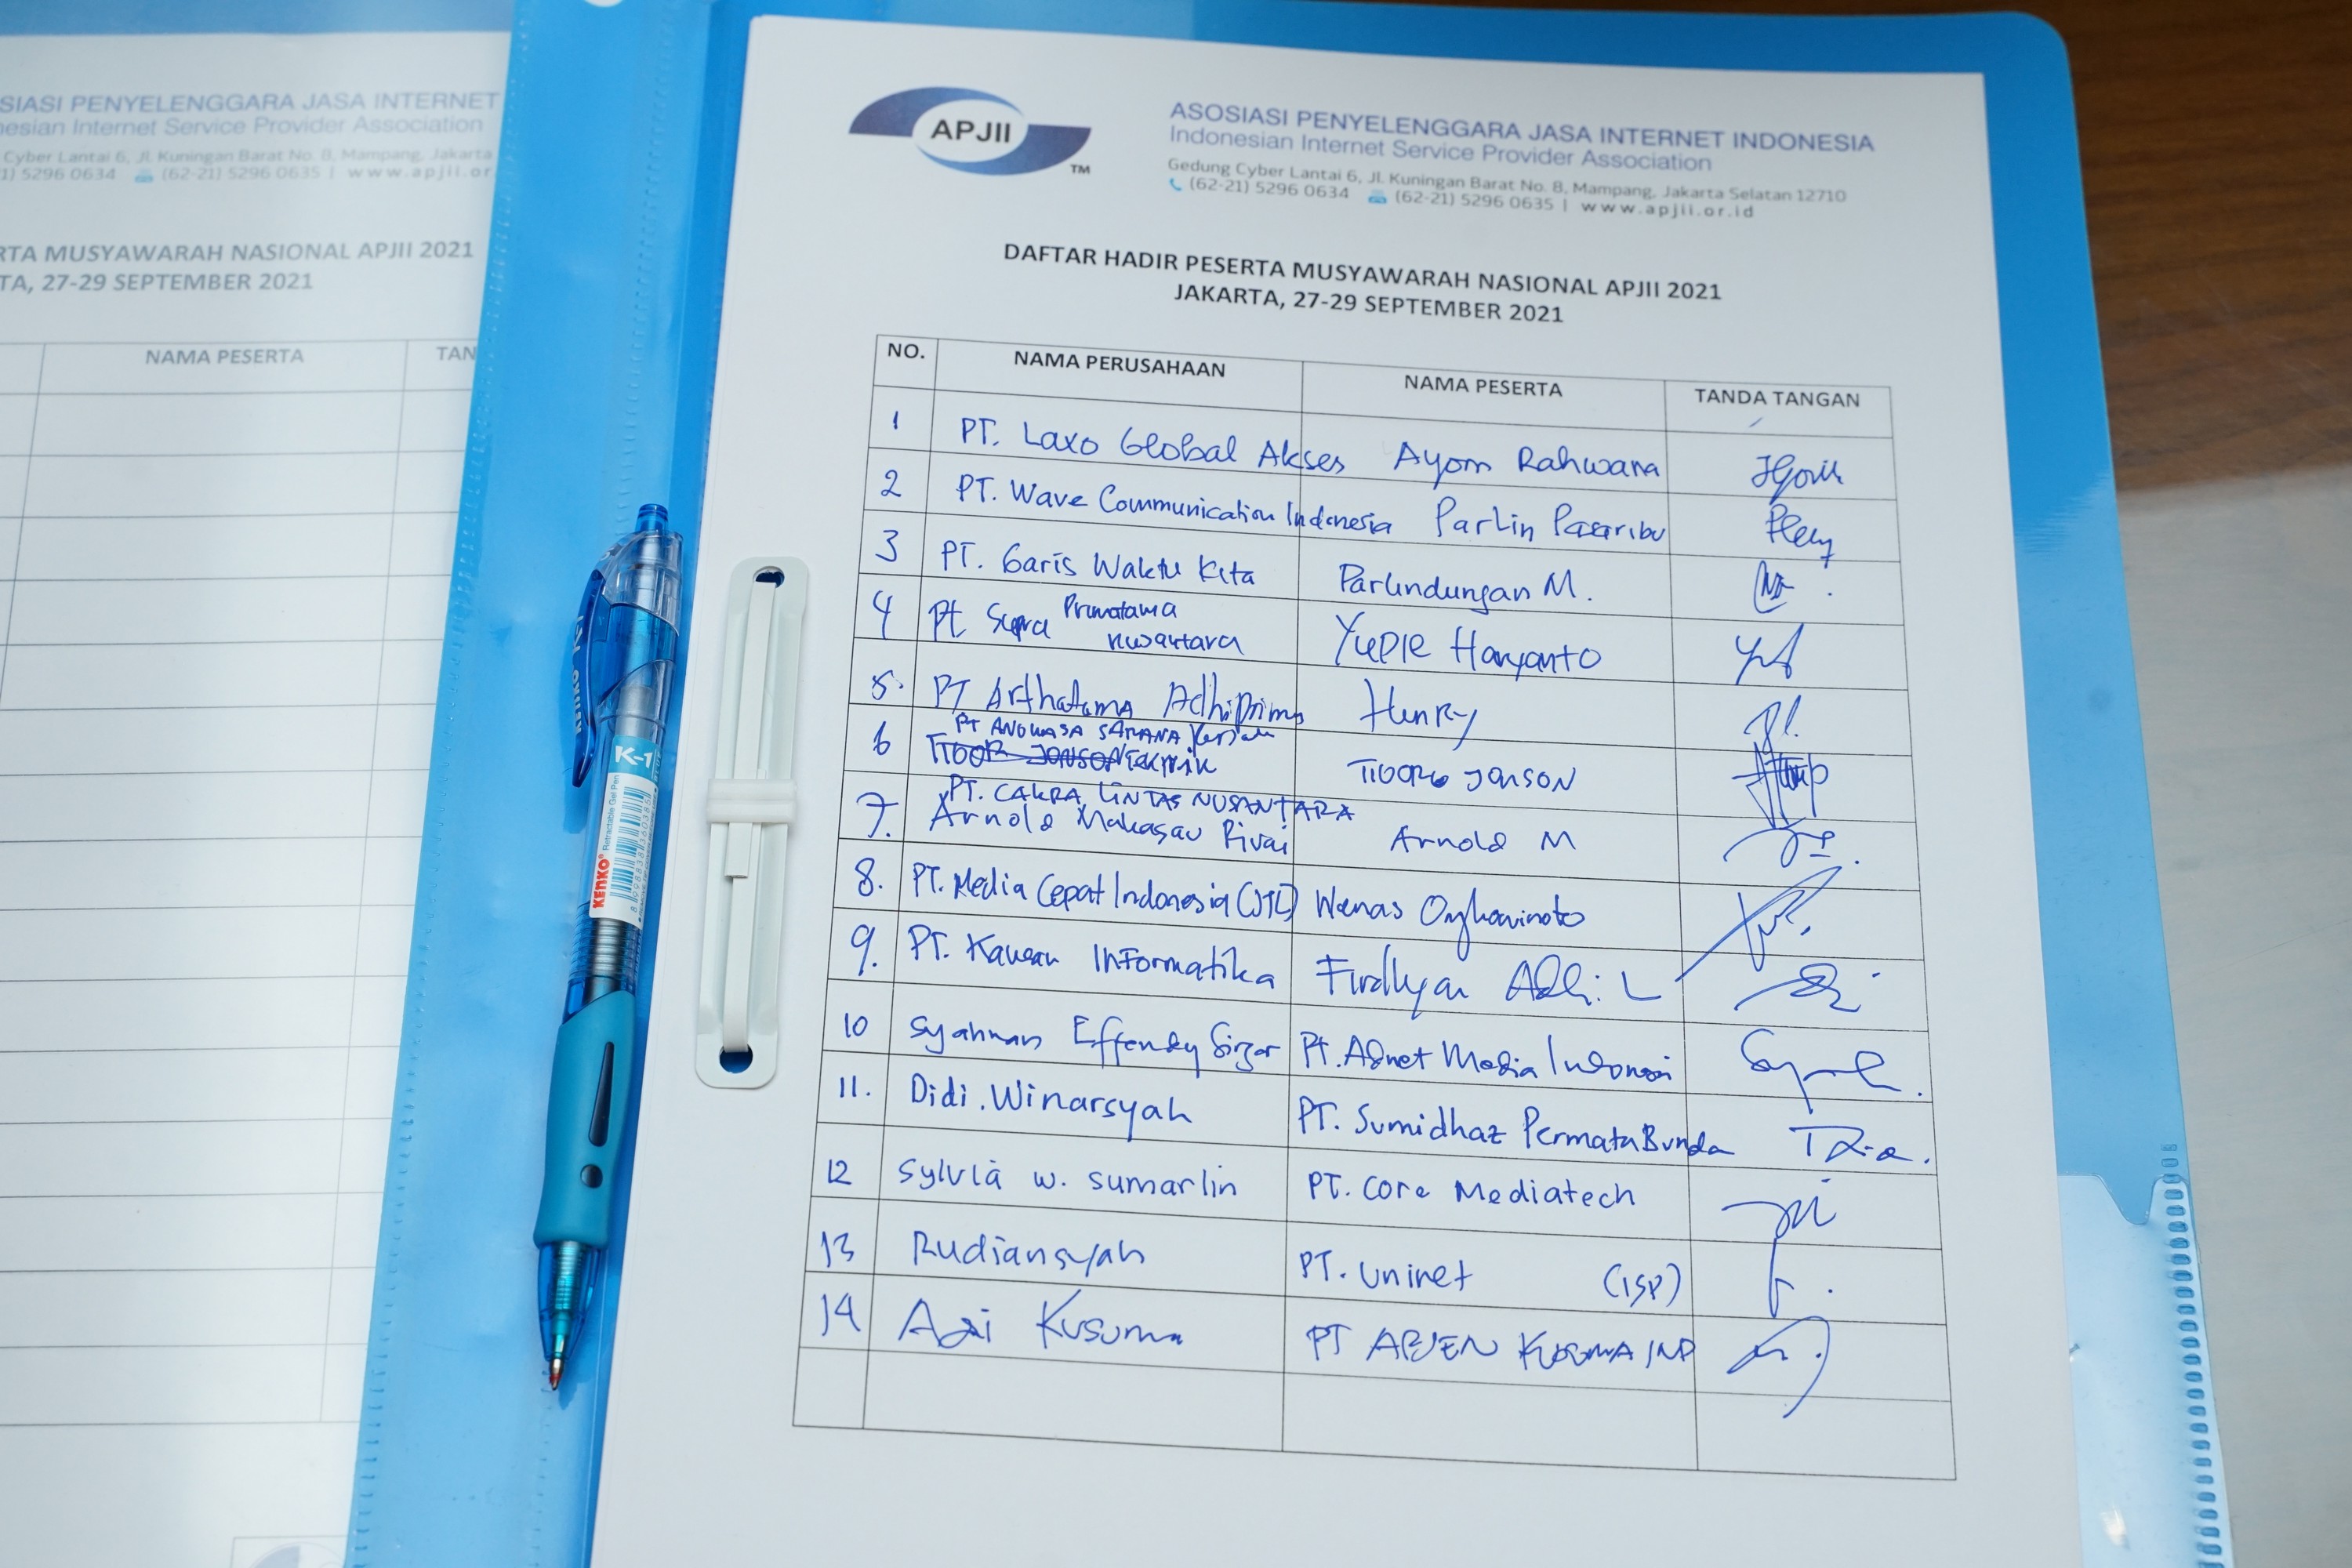 SIASI PENYELENGGARA JASA INTERNET
nesian Internet Service Provider Association
Cyber Lantai 6, Jl. Kuningan Barat No. 8, Mampang, Jakarta
1) 5296 0634 (62-21) 5296 0635 | www.apjii.or.
RTA MUSYAWARAH NASIONAL APJII 2021
TA, 27-29 SEPTEMBER 2021
NAMA PESERTA TAN
KENKO K-1
Retractable Gel Pen
APJII TM
ASOSIASI PENYELENGGARA JASA INTERNET INDONESIA
Indonesian Internet Service Provider Association
Gedung Cyber Lantai 6, Jl. Kuningan Barat No. 8, Mampang, Jakarta Selatan 12710
(62-21) 5296 0634 (62-21) 5296 0635 | www.apjii.or.id
DAFTAR HADIR PESERTA MUSYAWARAH NASIONAL APJII 2021
JAKARTA, 27-29 SEPTEMBER 2021
NO. NAMA PERUSAHAAN NAMA PESERTA TANDA TANGAN
1 PT. Laxo Global Akses Ayom Rahwana
2 PT. Wave Communication Indonesia Parlin Pasaribu
3 PT. Garis Waktu Kita Parlindungan M.
4 Pt Supra Primatama nusantara Yupie Haryanto
5. PT Arthatama Adhiprima Henry
PT ANGKASA SARANA
6 TEKNIK JONSON
PT. CAKRA LINTAS NUSANTARA
7. Arnold Makasau Rivai Arnold M
8. PT. Media Cepat Indonesia Wenas
9. PT. Kawan Informatika Firdhyan Adhi. L
10 Syahman Effendy Pt. Adnet Media
11. Didi. Winarsyah PT. Sumidhaz Permata Bunda
12 Sylvia w. sumarlin PT. Core Mediatech
13 Rudiansyah PT. Uninet (ISP)
14 Kusuma PT ARJEN KUSUMA IND